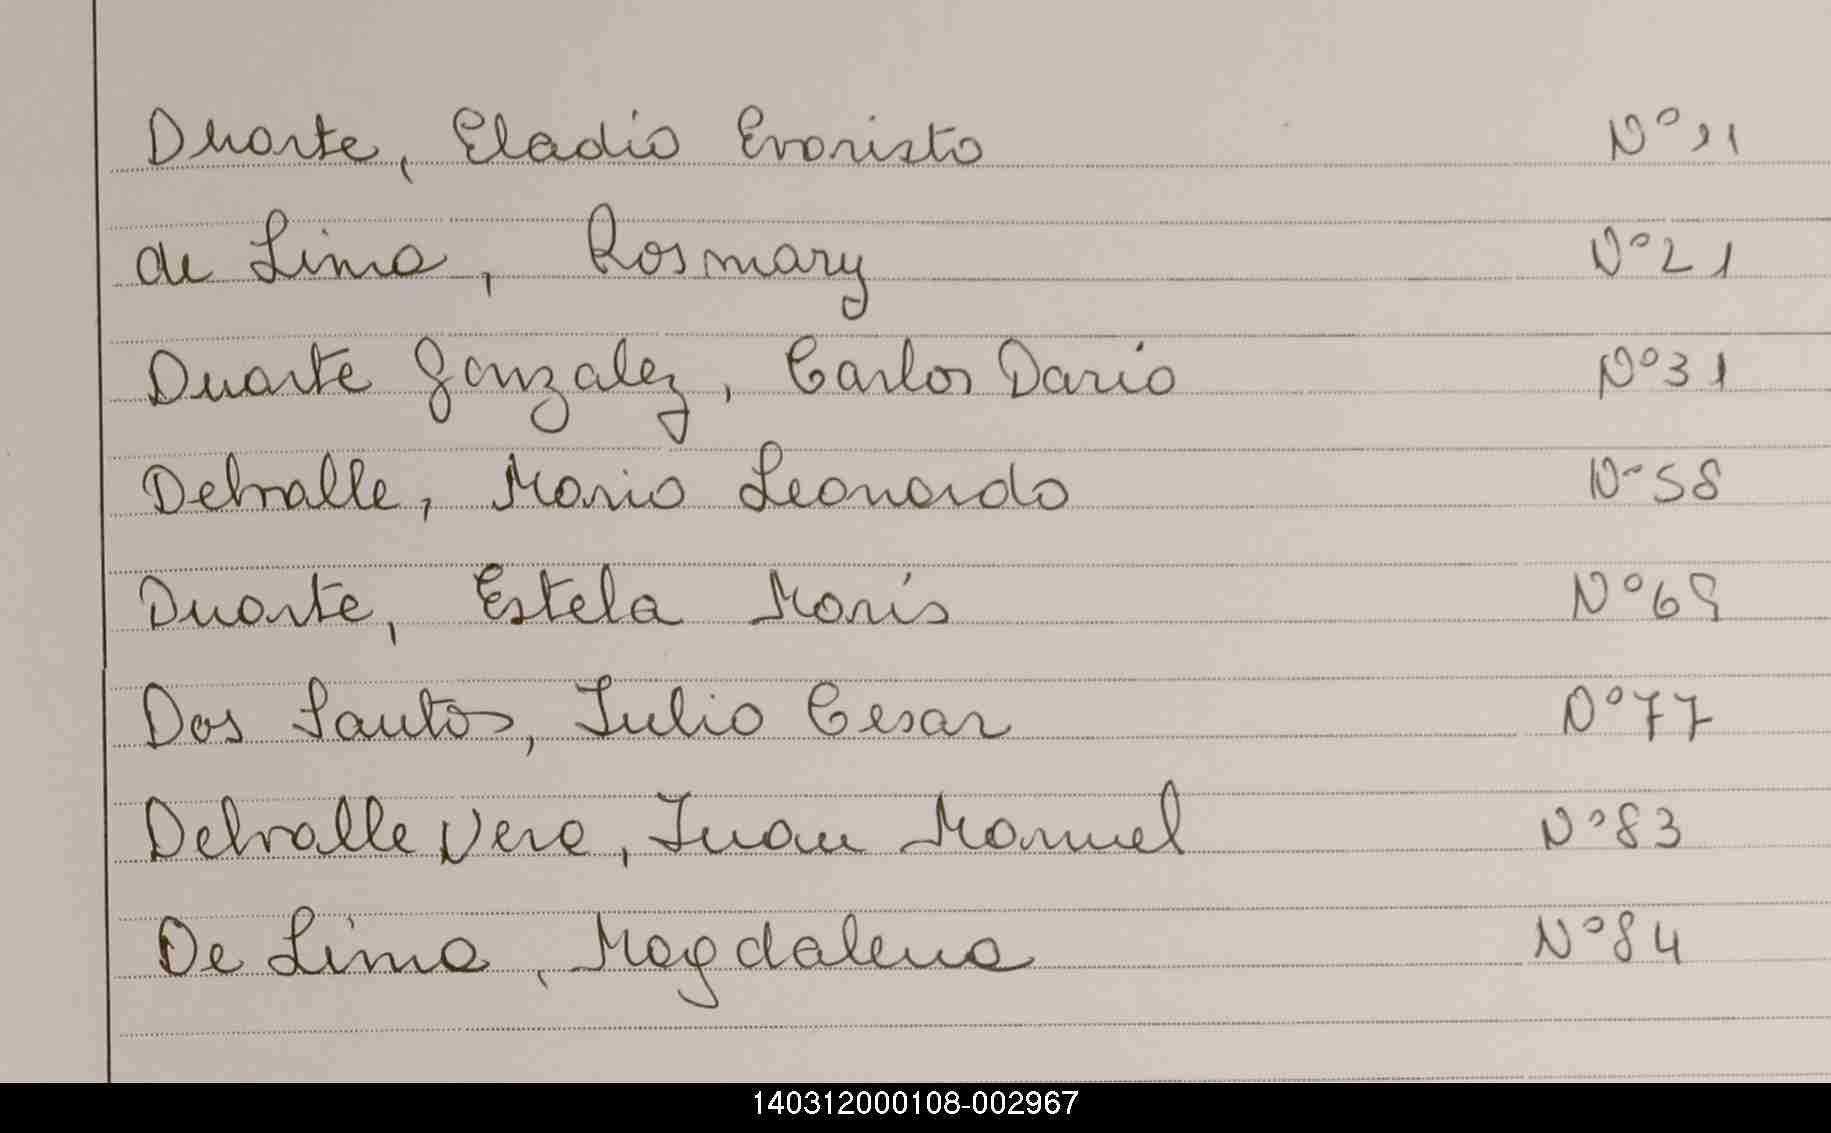 Duarte, Eladio Evaristo N° 11
de Lima, Rosmary N° 21
Duarte Gonzalez, Carlos Dario N° 31
Delvalle, Mario Leonardo N° 58
Duarte, Estela Maris N° 69
Dos Santos, Julio Cesar N° 77
Delvalle Vera, Juan Manuel N° 83
De Lima, Magdalena N° 84
140312000108-002967